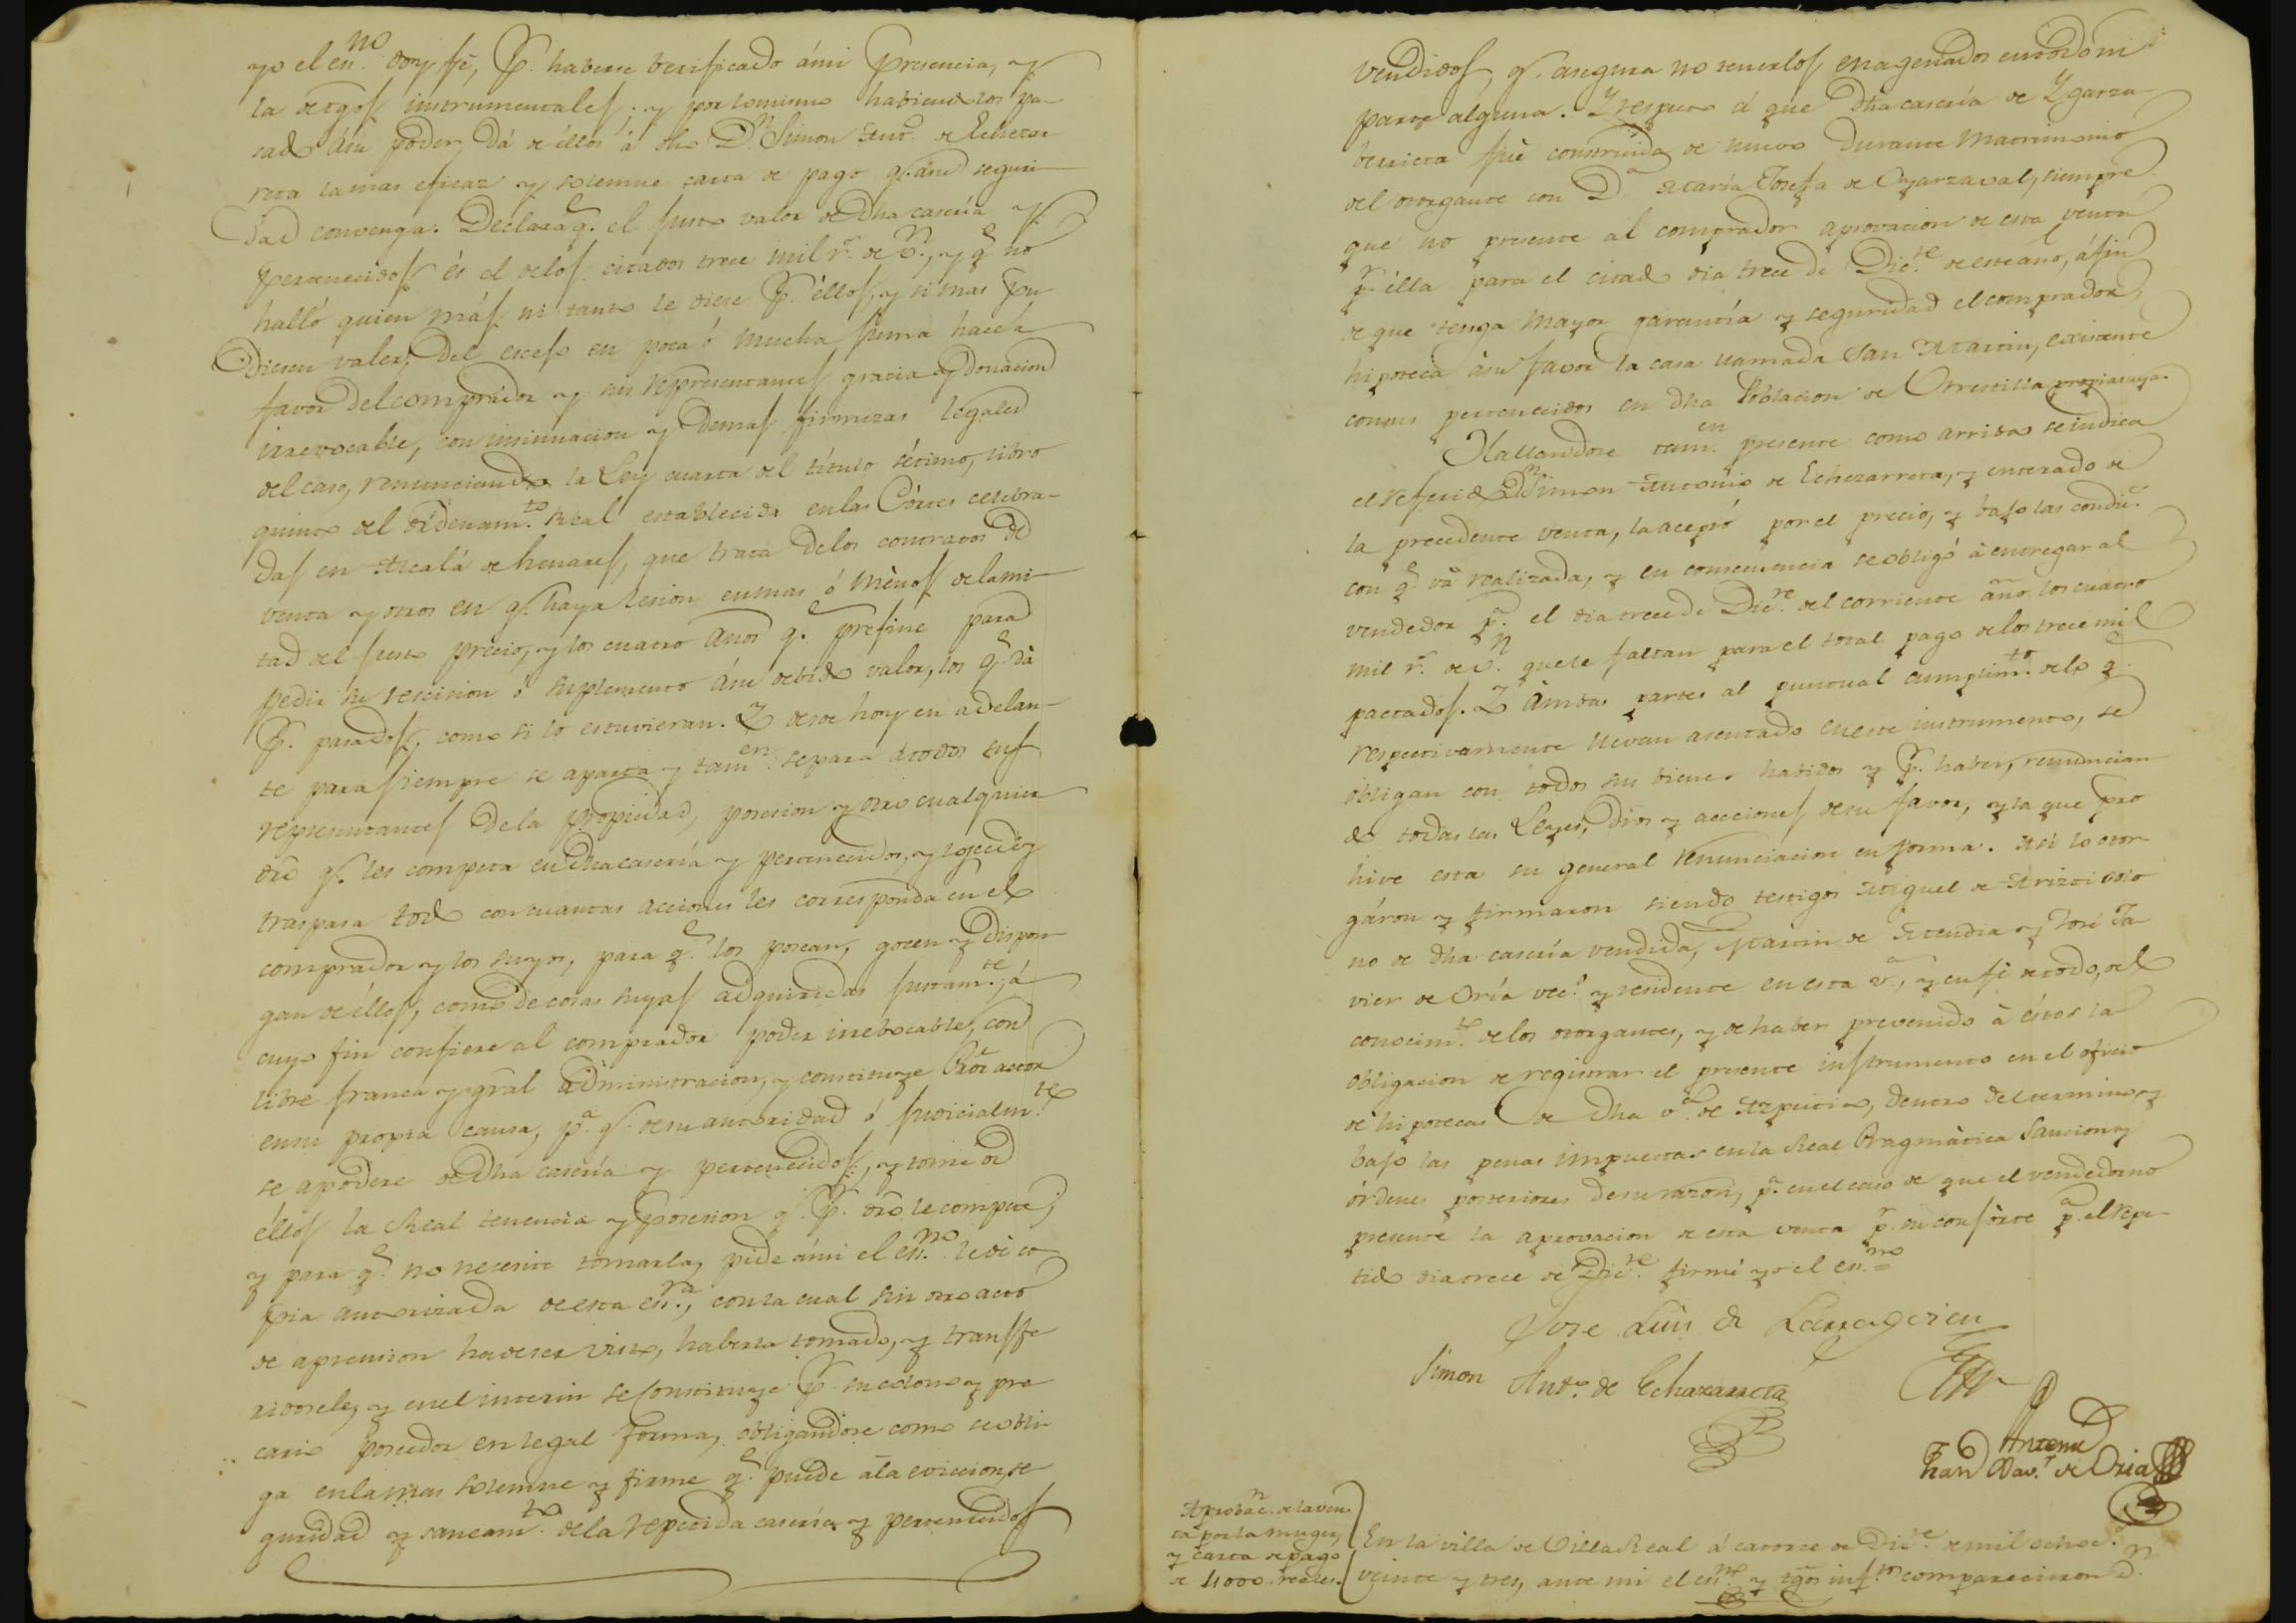 yo el es.no doy fé, p.r haberse berificado ámi presencia, y
la de tgos instrumentales; y por lo mismo habiendolos pa-
sado ásu poder, dá de éllos á dho D.n Simon Ant.o de Echezar-
reta la mas eficaz y solemne carta de pago q.e ásu seguri-
dad convenga. Declara q.e el justo valor de dha casería y
pertenecidos és el de los citados trece mil r.s de v.n, y q.e no
halló quien más ni tanto le diese p.r éllos, y si mas pu-
dieren valer, del esceso en poca ó mucha suma hace á
favor del comprador y sus representantes gracia y donacion
irrevocable, con insinuacion y demas firmezas legales
del caso, renunciando la Ley cuarta del título sétimo, libro
quinto del ordenam.to Real establecida en las Córtes celebra-
das en Alcalá de henares, que trata de los contratos de
venta y otros en q.e haya lesion en mas ó ménos de la mi-
tad del justo precio, y los cuatro años q.e prefine para
pedir su rescision ó suplemento ásu debido valor, los q.e dá
p.r pasados, como si lo estuvieran. Y desde hoy en adelan-
te para siempre se aparta y tam.en separa átodos sus
representantes de la propiedad, posesion y otro cualquier
dro q.e les competa en dha casería y pertenecidos, y lo cede y
traspasa todo con cuantas acciones les corresponda en el
comprador y los suyos, para q.e los posean, gocen y dispon-
gan de éllos, como de cosas suyas adquiridas justam.te, á
cuyo fin confiere al comprador poder irrebocable, con
libre franca y gral administracion, y constituye Pror actor
en su propia causa, p.a q.e de su autoridad ó judicialm.te
se apodere de dha casería y pertenecidos, y tome de
éllos la Real tenencia y posesion q.e p.r dro le compete;
y para q.e no necesite tomarla, pide ámi el es.no le dé co-
pia autorizada de esta es.ra, con la cual sin otro acto
de aprension ha de ser visto, haberla tomado, y transfe-
ridosele, y en el interin se constituye p.r su colono y pre-
cario poseedor en legal forma, obligandose como se obli-
ga en la mas solemne y firme q.e puede á la eviccion, se-
guridad y saneam.to de la repetida casería y pertenecidos
vendidos, q.e asegura no tenerlos enagenados en todo ni
parte alguna. Y respecto á que dha casería de Ygarza-
berrieta fué construida de nuevo durante matrimonio
del otorgante con D.a María Josefa de Oyarzaval, siempre
que no presente al comprador aprovacion de esta venta
p.r élla para el citado dia trece de Dic.re de este año, á fin
de que tenga mayor garantía y seguridad el comprador,
hipoteca ásu favor la casa llamada San Martin, existente
con sus pertenecidos en dha Poblacion de Urrestilla propia suya.
Hallandose tam.en presente como arriba se indica
el referido D.n Simon Antonio de Echezarreta, y enterado de
la precedente venta, la aceptó por el precio, y bajo las condic.s
con q.e vá realizada, y en consecuencia se obligó á entregar al
vendedor p.a el dia trece de Dic.re del corriente año los cuatro
mil r.s de v.n que le faltan para el total pago de los trece mil
pactados. Y ámbas partes al puntual cumplim.to de lo q.e
respectivamente llevan asentado en este instrumento, se
obligan con todos sus bienes habidos y p.r haber, renuncian-
do todas las Leyes, dros y acciones de su favor, y la que pro-
hive esta su general renunciacion en forma. Así lo otor-
gáron y firmaron siendo testigos Miguel de Arizti colo-
no de dha casería vendida, Martin de Atendia y José Ja-
vier de Oría vec.s y residente en esta v.a, y en fé de todo, del
conocim.to de los otorgantes, y de haber prevenido á éstos la
obligacion de registrar el presente instrumento en el oficio
de hipotecas de dha v.a de Azpeitia, dentro del termino, y
bajo las penas impuestas en la Real Pragmática Sancion y
órdenes posteriores de su razon, p.a en el caso de que el vendedor no
presente la aprovacion de esta venta p.r su consorte p.a el repe-
tido dia trece de Dic.re firmé yo el es.no =
Jose Luis de Larra
Simon Ant.o de Echazarreta
Antemi
Juan Bau.ta de Oria
Aprobac.n de la ven-
ta por la muger,
y carta de pago
de 4000 reales.
En la villa de Villa Real á catorce de Dic.re de mil ochoc.s
veinte y tres, ante mi el es.no y tgos inf.tos comparecieron D.n